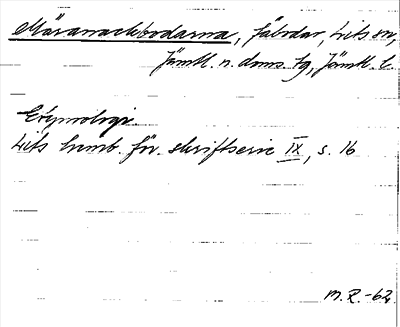 Märanackbodarna, fäbodar, Lits sn,
Jämtl. n. doms. tg, Jämtl. l.
Etymologi.
Lits hemb. för. skriftserie IX, s. 16
M.R. -62